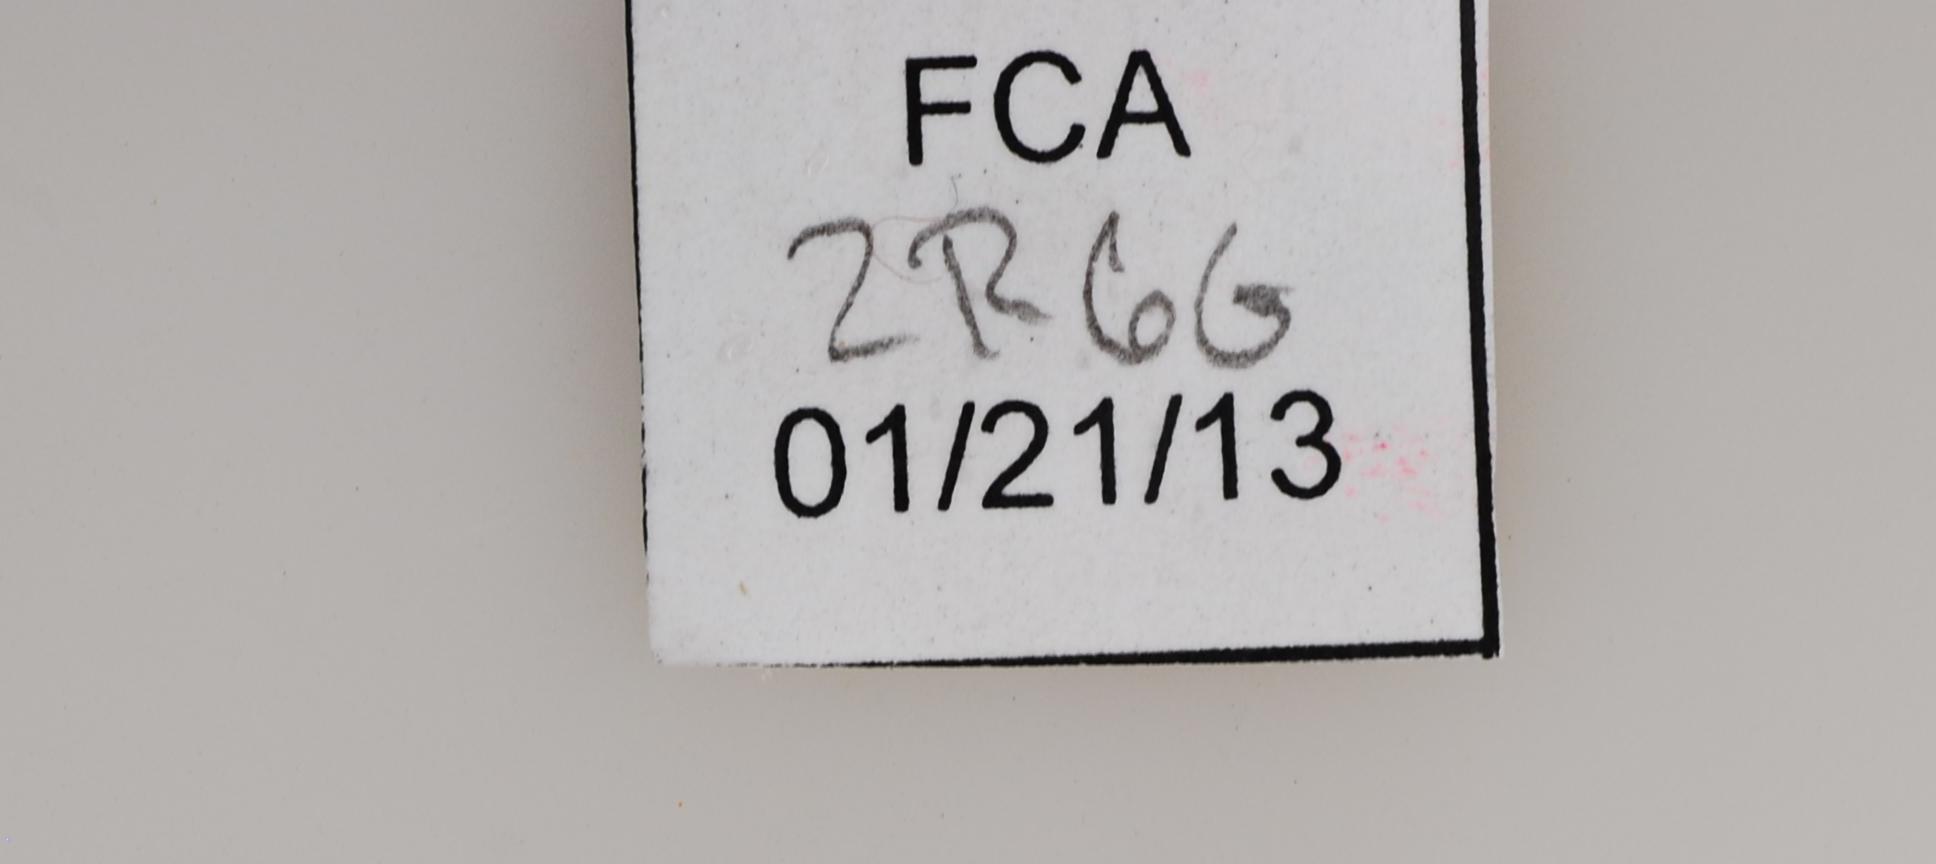 FCA
2R6G
01/21/13